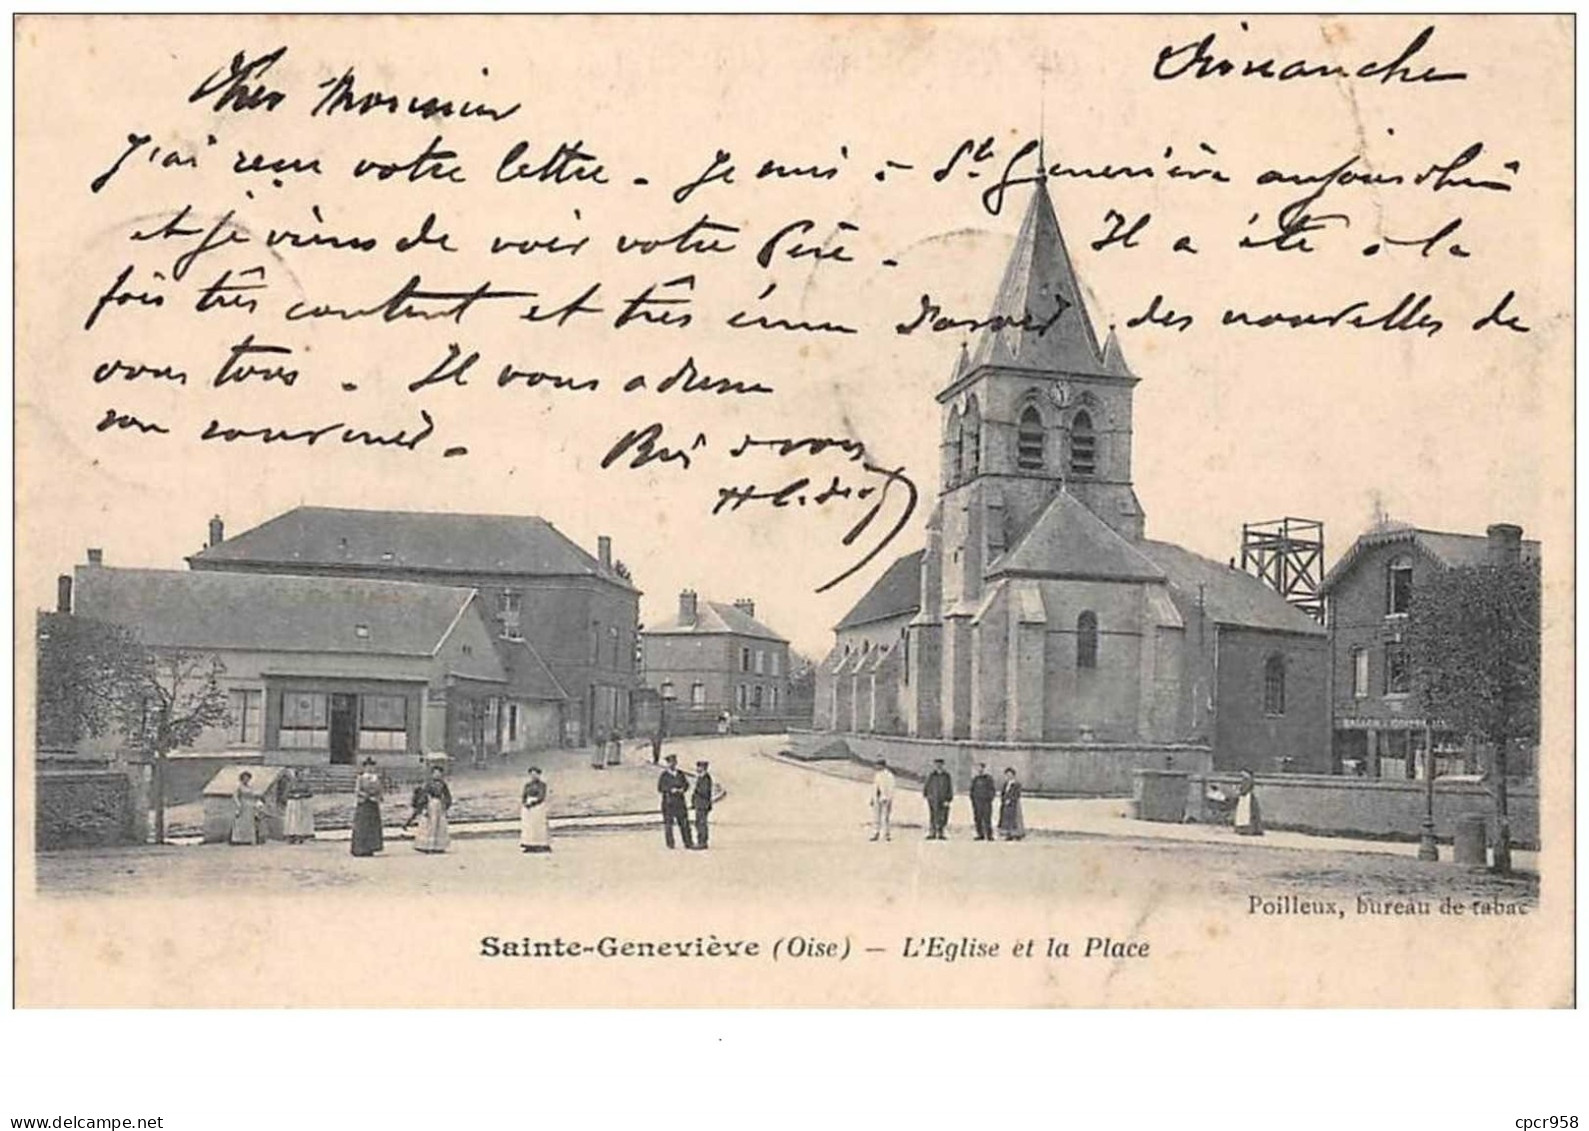 Dimanche
Cher Monsieur
J'ai reçu votre lettre. Je suis à Ste Geneviève aujourd'hui
et je viens de voir votre Père. Il a été à la
fois très content et très ému d'avoir des nouvelles de
vous tous. Il vous adresse
son souvenir.
Bien à vous
Poilleux, bureau de tabac
Sainte-Geneviève (Oise) — L'Eglise et la Place
www.delcampe.net
cpcr958